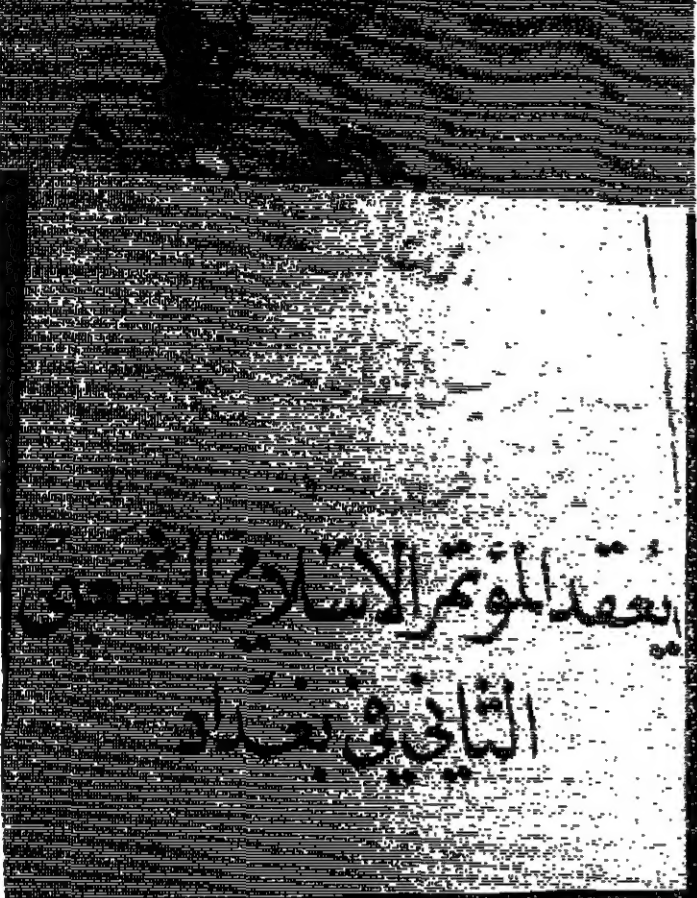 يُعقد المؤتمر الاسلامي الشعبي
الثاني في بغداد